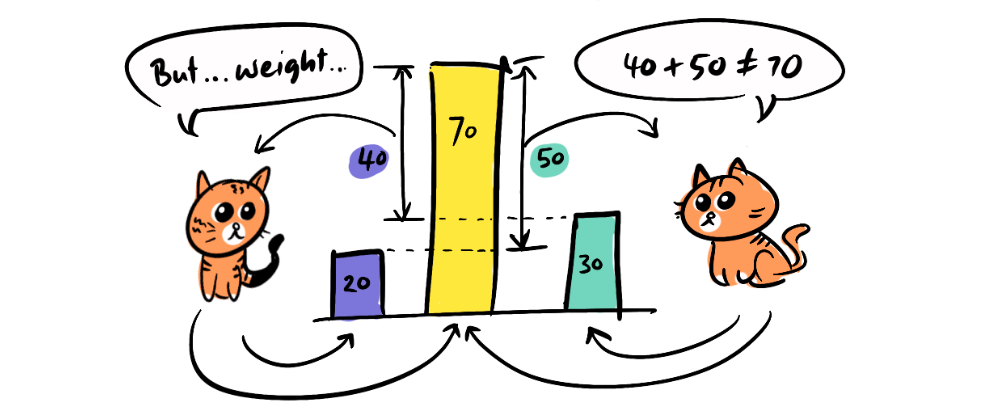 But...weight...
40 + 50 ≠ 70
70
40
50
20
30